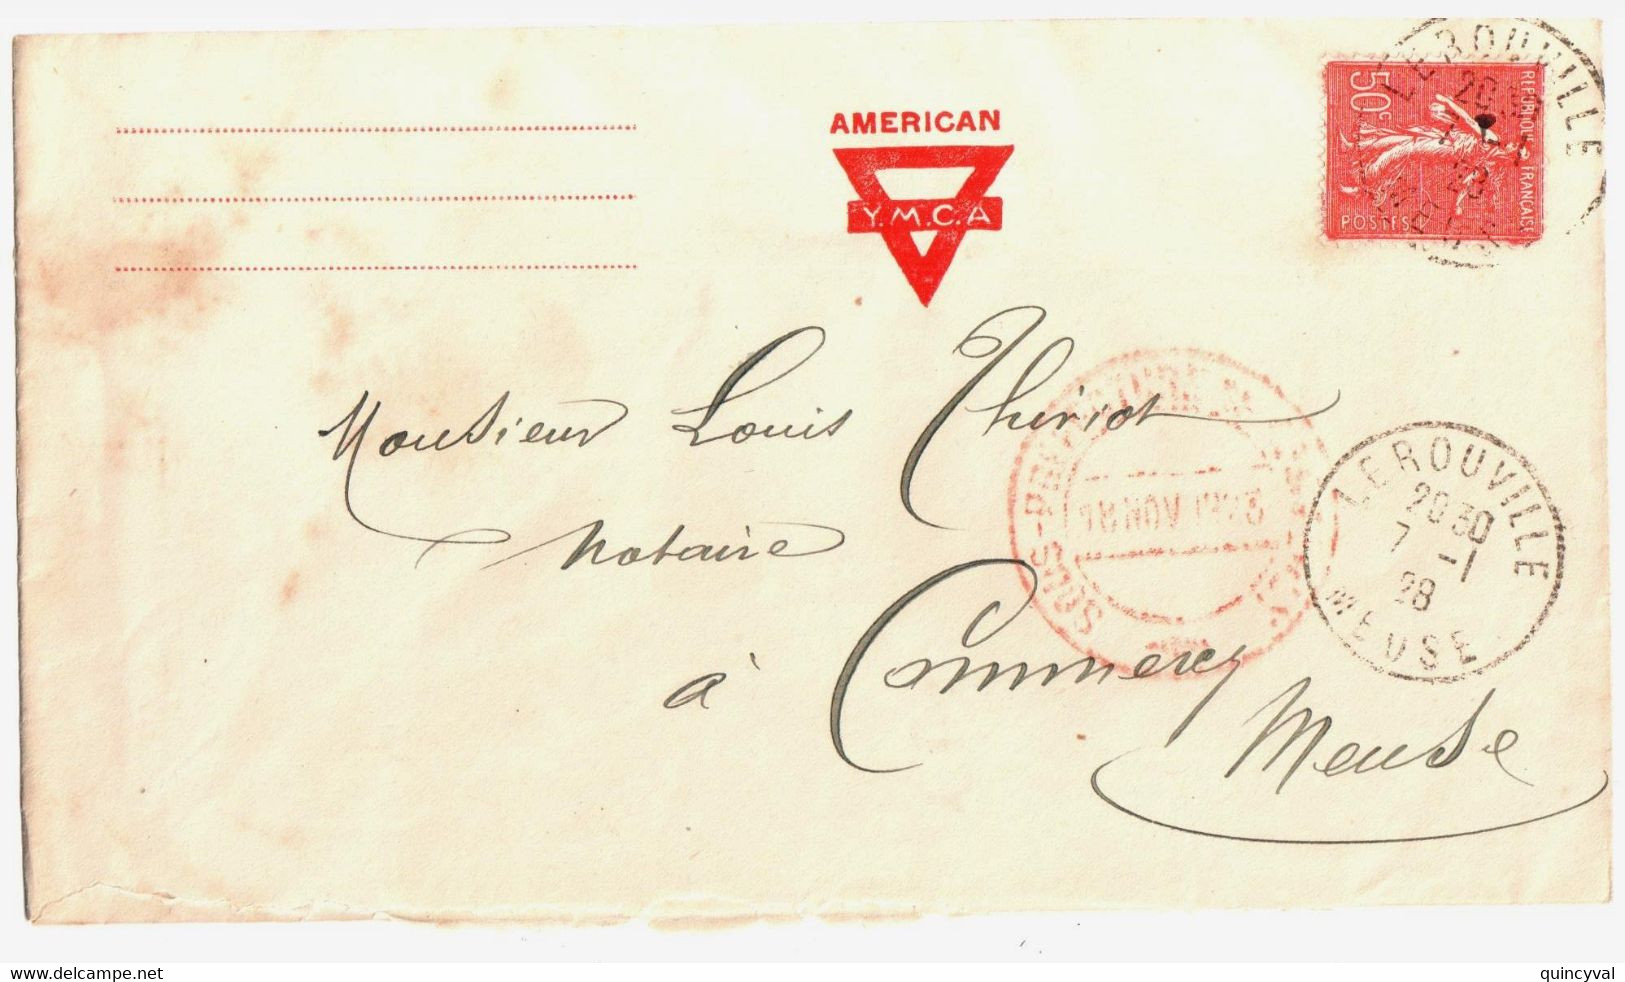 AMERICAN
Y.M.C.A
50c
REPUBLIQUE FRANÇAISE
POSTES
LEROUVILLE
20 30
7 - 1
28
MEUSE
Monsieur Louis Thiriot
Notaire
à Commercy
Meuse
SOUS-PRÉFECTURE
LEROUVILLE
20 30
7 - 1
28
MEUSE
www.delcampe.net
quincyval